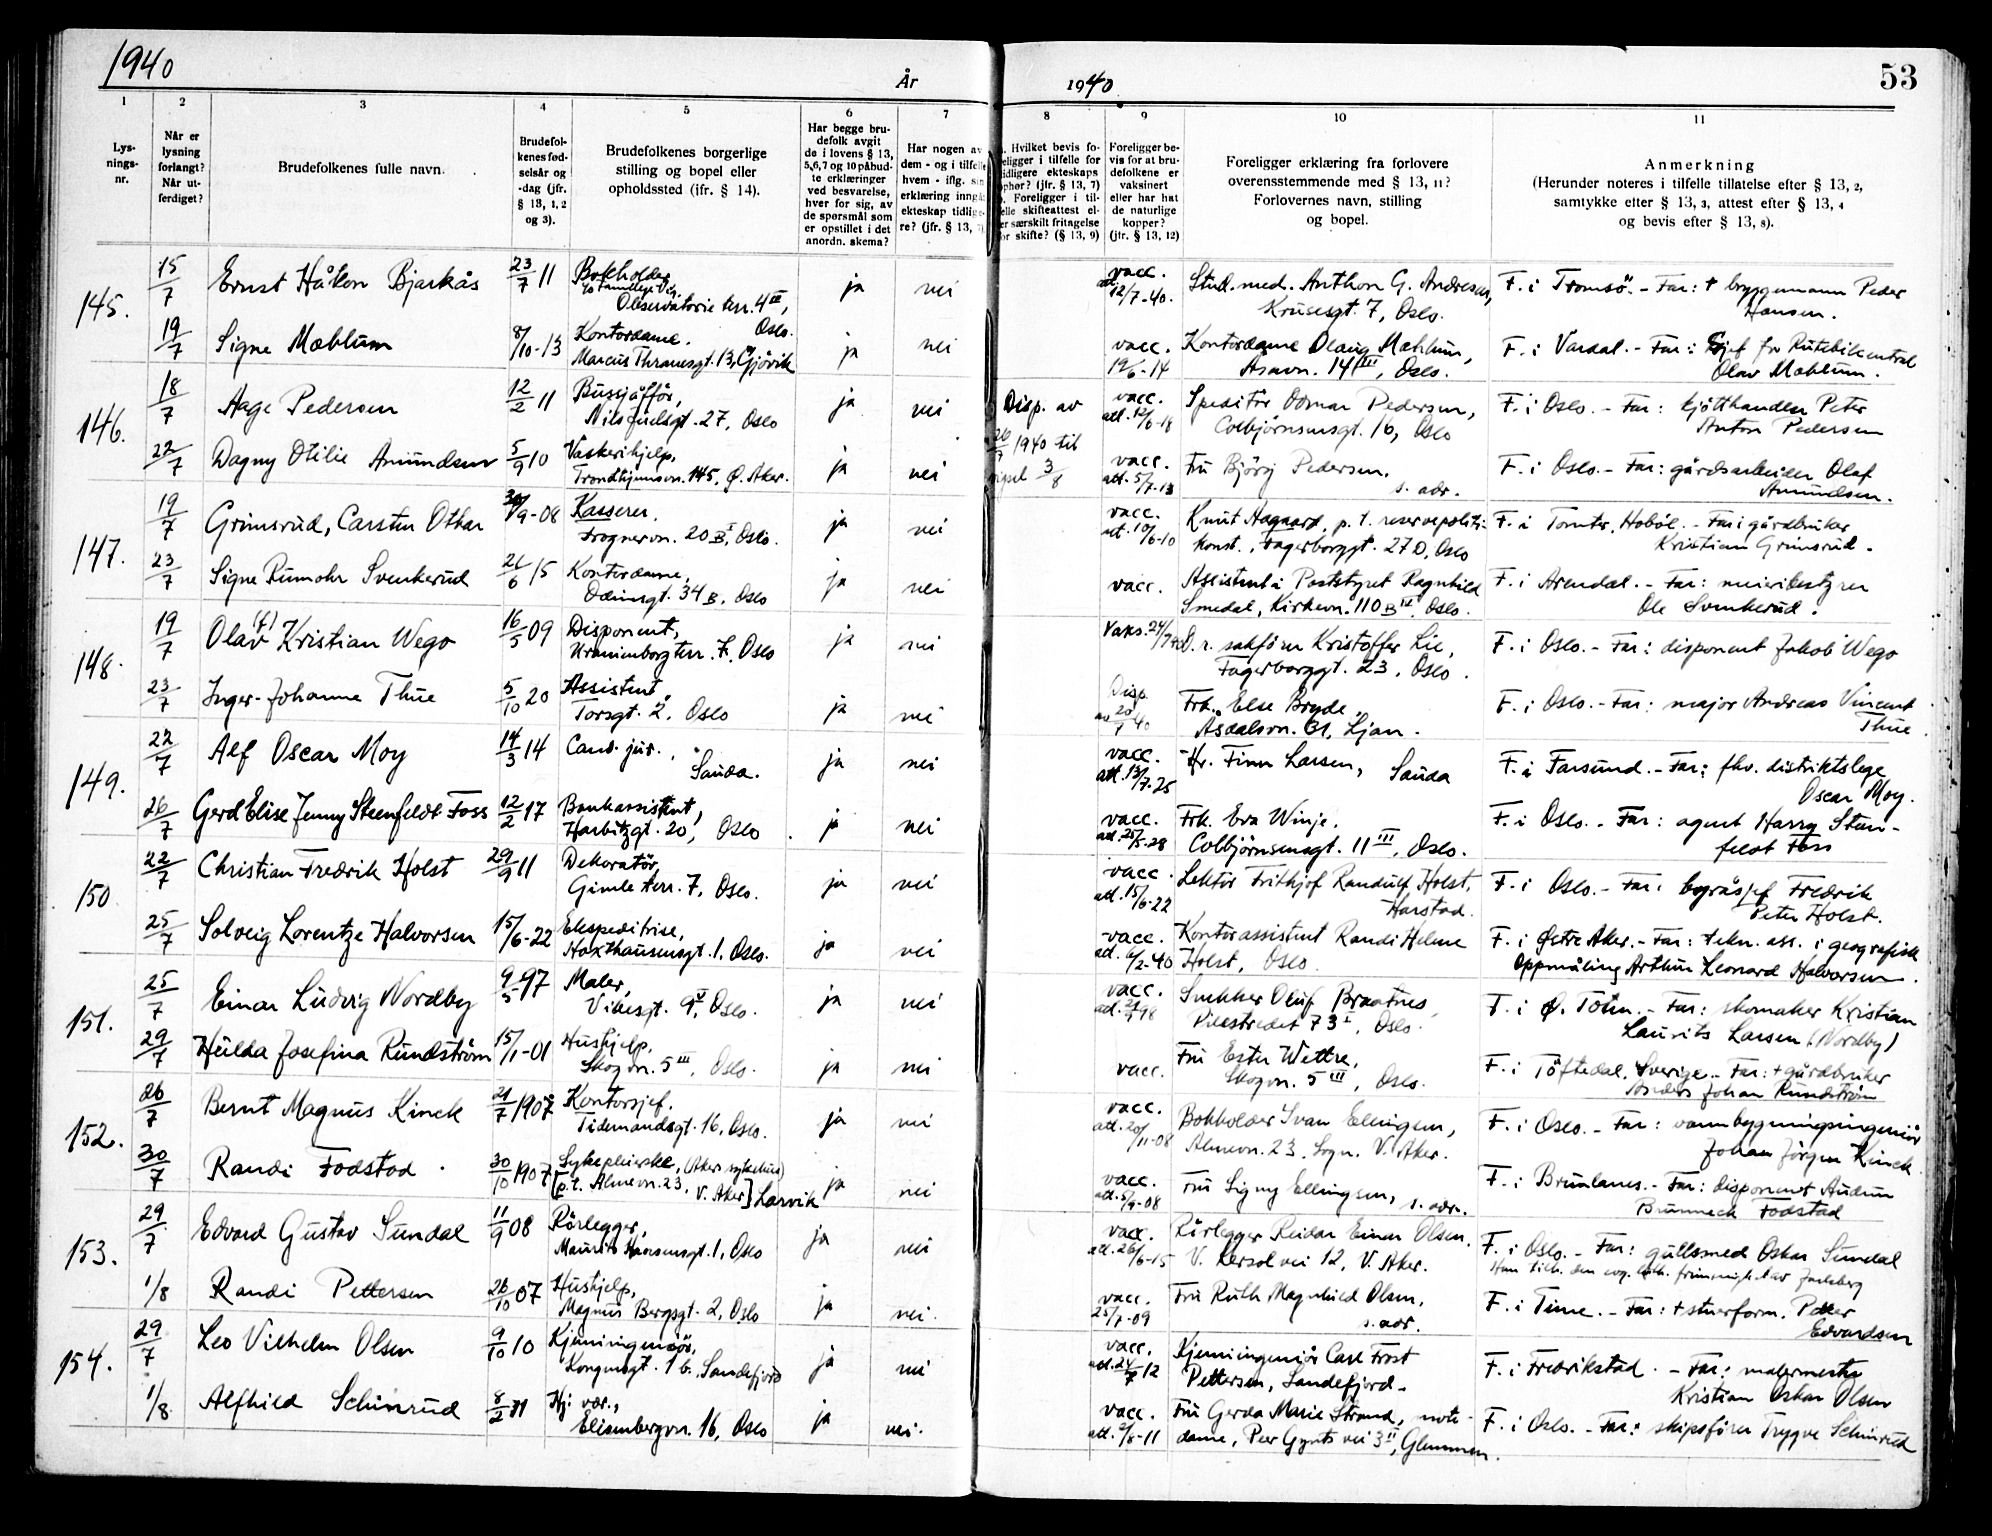 1940
År
1940
53
1
2
3
4
5
6
7
8
9
10
11
Lys-
nings-
nr.
Når er
lysning
forlangt?
Når ut-
ferdiget?
Brudefolkenes fulle navn.
Brudefol-
kenes fød-
selsår og
-dag (jfr.
§ 13, 1, 2
og 3).
Brudefolkenes borgerlige
stilling og bopel eller
opholdssted (ifr. § 14).
Har begge bru-
defolk avgit
de i lovens § 13,
5,6,7 og 10 påbud-
te erklæringer
ved besvarelse,
hver for sig, av
de spørsmål som
er opstillet i det
anordn. skema?
Har nogen av
dem - og i tilfelle
hvem - iflg. sin
erklæring inngå
ekteskap tidlige-
re? (jfr. § 13,
Hvilket bevis fo-
religger i tilfelle for
tidligere ekteskaps
ophør? (jfr. § 13, 7)
Foreligger i til-
felle skifteattest el-
er særskilt fritagelse
for skifte? (§ 13, 9)
Foreligger be-
vis for at bru-
defolkene er
vaksinert
eller har hat
de naturlige
kopper?
(jfr. § 13, 12)
Foreligger erklæring fra forlovere
overensstemmende med § 13, 11?
Forlovernes navn, stilling
og bopel.
Anmerkning
(Herunder noteres i tilfelle tillatelse efter § 13, 2,
samtykke efter § 13, 3, attest efter § 13, 4
og bevis efter § 13, 8).
145.
15/7 Ernst Håkon Bjarkås 23/7 11 Bokholder,
Observatorie terr. 4 III, Oslo.
ja nei
vacc. att. 12/7-40.
Stud. med. Anthon G. Andresen,
Krusesgt. 7, Oslo.
F. i Tromsö. - Far: + bryggemann Peder
Hansen.
19/7 Signe Mæhlum 8/10-13 Kontordame.
Marcus Thranesgt. 13, Gjövik
ja nei
vacc. 19/6-14
Kontordame Olaug Mæhlum,
Asavn. 14 III, Oslo.
F. i Vardal. - Far: Sjef for Rutebilcentral
Olav Mæhlum.
146.
18/7 Aage Pedersen 12/2 11 Bussjåfför,
Nils Juelsgt. 27, Oslo
ja nei
Disp. av
26/7 1940 til
3/8
vacc. att. 12/6-18
Speditör Odmar Pedersen,
Colbjörnsensgt. 16, Oslo
F. i Oslo. - Far: kjötthandler Peter
Anton Pedersen
22/7 Dagny Otilie Amundsen 5/9 10 Vaskerihjelp,
Trondhjemsvn. 145, Ø. Aker.
ja nei
vacc. att. 5/7-13
Fru Björg Pedersen,
s. adr.
F. i Oslo. - Far: gårdsarbeider Olaf
Amundsen.
147.
19/7 Grimsrud, Carsten Othar 30/9-08 Kasserer.
Frognervn. 20 B I, Oslo.
ja nei
vacc. att. 10/6-10
Knut Aagaard, p. t. reservepoliti-
konst., Fagerborggt. 27 D, Oslo
F. i Tomter, Hoböl. - Far: gårdbruker
Kristian Grimsrud.
23/7 Signe Rumohr Svenkerud 26/6 15 Kontordame,
Odinsgt. 34 B, Oslo
ja nei
vacc.
Assistent i Poststyret Ragnhild
Smedal, Kirkevn. 110 B IV, Oslo.
F. i Arendal. - Far: meieribestyrer
Ole Svenkerud.
148.
19/7 Olav (f) Kristian Wego 16/5 09 Disponent,
Uranienborg terr. 7, Oslo
ja nei
Vaks. 24/7 40
O. r. sakförer Kristoffer Lie,
Fagerborggt. 23, Oslo.
F. i Oslo. - Far: disponent Jakob Wego
23/7 Inger-Johanne Thue 5/10 20 Assistent,
Torsgt. 2, Oslo
ja nei
Disp. av 20/7 40
Frk. Else Bryde,
Åsdalsvn. 31, Ljan.
F. i Oslo. - Far: major Andreas Vincent
Thue.
149.
22/7 Alf Oscar Moy 14/3 14 Cand. jur.,
Sauda.
ja nei
vacc. att. 13/7-25
Hr. Finn Larsen, Sauda
F. i Farsund. - Far: fhv. distriktslege
Oscar Moy.
26/7 Gerd Elise Jenny Steenfeldt Foss 12/2 17 Bankassistent,
Harbitzgt. 20, Oslo.
ja nei
vacc. att. 25/5-28
Frk. Eva Winje.
Colbjörnsensgt. 11 III, Oslo.
F. i Oslo. - Far: agent Harry Steen-
feldt Foss
150
22/7 Christian Fredrik Holst 29/9 11 Dekoratör,
Gimle terr. 7, Oslo.
ja nei
vacc. att. 15/6-22
Lektor Frithjof Randulf Holst,
Harstad.
F. i Oslo. - Far: byråsjef Fredrik
Peter Holst.
25/7 Solveig Lorentze Halvorsen 15/6-22 Ekspeditrise,
Hoxthausensgt. 1, Oslo.
ja nei
vacc. att. 6/2-40
Kontorassistent Randi Helme
Holst, Oslo.
F. i Østre Aker. - Far: tekn. ass. i geografisk
Oppmåling Arthur Leonard Halvorsen.
151.
25/7 Einar Ludvig Nordby 9/5 97 Maler,
Vibesgt. 9 V, Oslo.
ja nei
vacc. att. 21/9 98
Snekker Oluf Braatnes
Pilestredet 73 I, Oslo.
F. i Ø. Toten. - Far: skomaker Kristian
Laurits Larsen (Nordby)
29/7 Hulda Josefina Rundström 15/1-01 Hushjelp,
Skogvn. 5 III, Oslo.
ja nei
vacc.
Fru Ester Wettre,
Skogvn. 5 III, Oslo.
F. i Töftedal, Sverige. - Far: + gårdbruker
Anders Johan Rundström
152.
26/7 Bernt Magnus Kinck 21/7 1907 Kontorsjef,
Tidemandsgt. 16, Oslo.
ja nei
vacc. att. 20/11-08
Bokholder Ivar Ellingsen,
Almevn. 23, Sogn. V. Aker.
F. i Oslo. - Far: vannbygningsingeniör
Johan Jörgen Kinck.
30/7 Randi Fodstad. 30/10 1907 Sykepleierske, (Aker sykehus)
[p.t. Almevn. 23, V. Aker] Larvik
ja nei
vacc. att. 5/9-08
Fru Signy Ellingsen, s. adr.
F. i Brunlanes. - Far: disponent Audun
Brunneck Fodstad
153.
29/7 Edvard Gustav Sundal 11/9 08 Rörlegger,
Maurits Hansensgt. 1, Oslo
ja nei
vacc. att. 26/6-15
Rörlegger Reidar Einar Olsen,
V. Kersol vei 12, V. Aker.
F. i Oslo. - Far: gullsmed Oskar Sundal
Han tilh. den evg. luth. frimenigh. av Jarlsberg
1/8 Randi Pettersen 26/10 07 Hushjelp,
Magnus Bergsgt. 2, Oslo
ja nei.
vacc. 25/7-09
Fru Ruth Magnhild Olsen,
s. adr.
F. i Time. - Far: + stuerform. Peder
Edvardsen
154.
29/7 Leo Vilhelm Olsen 9/10 10 Kjemiingeniör,
Kongensgt. 1 b, Sandefjord
ja nei
vacc. att. 24/7 12
Kjemiingeniör Carl Frost
Pettersen, Sandefjord.
F. i Fredrikstad. - Far: malermester
Kristian Oskar Olsen
1/8 Alfhild Schinrud 8/2 11 Hj: vær.,
Elisenbergvn. 16, Oslo
ja nei.
vacc. att. 2/8-11
Fru Gerda Marie Strand, note-
dame, Peer Gynts vei 3 II, Glemmen.
F. i Oslo. - Far: skipsförer Trygve Schinrud